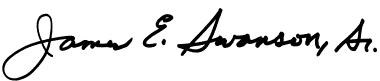 James E. Swanson, Sr.